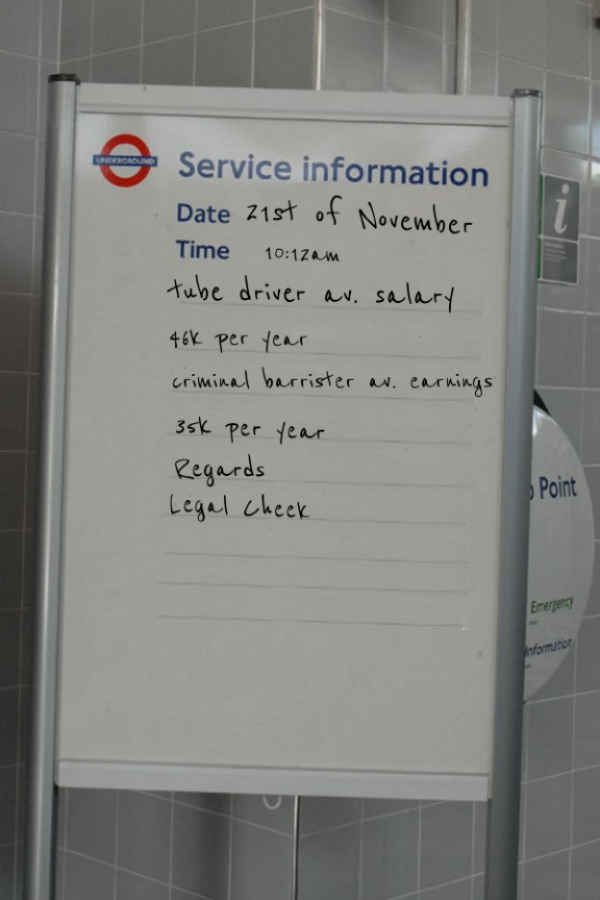 UNDERGROUND
Service information
Date 21st of November
Time 10:12am
tube driver av. salary
46k per year
criminal barrister av. earnings
35k per year
Regards
Legal Cheek
i
Point
Emergency
Information